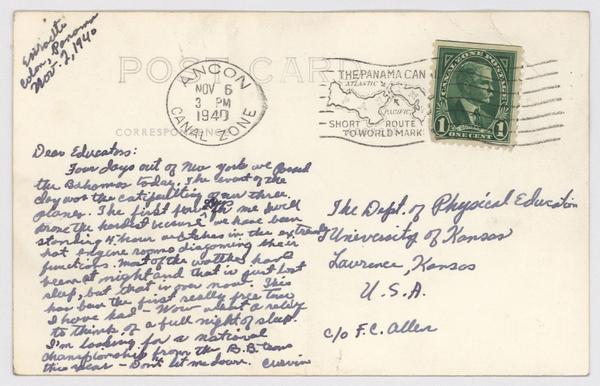 Enroute
Colon, Panama
Nov. 2, 1940
POST CARD
CORRESPONDENCE
ANCON
NOV 6
3 PM
1940
CANAL ZONE
THE PANAMA CAN
ATLANTIC
PACIFIC
SHORT ROUTE
TO WORLD MARK
CANAL ZONE POSTAGE
1 1
ONE CENT
Dear Educators:
Four days out of New York we passed
the Bahamas today. The event of the
day was the catapulting of our three
planes. The first for me
the hardest we have been
standing 4 hour watches in the extremely
hot engine rooms diagraming their
functions. Most of the watches have
been at night and that is just lost
sleep, but that is over now. This
has been the first really free time
I have had - Wow what a relief
to think of a full night of sleep.
I'm looking for a national
championship from the B.B. team
this year - Don't let me down.
The Dept. of Physical Education
University of Kansas
Lawrence, Kansas
U.S.A.
c/o F.C. Allen